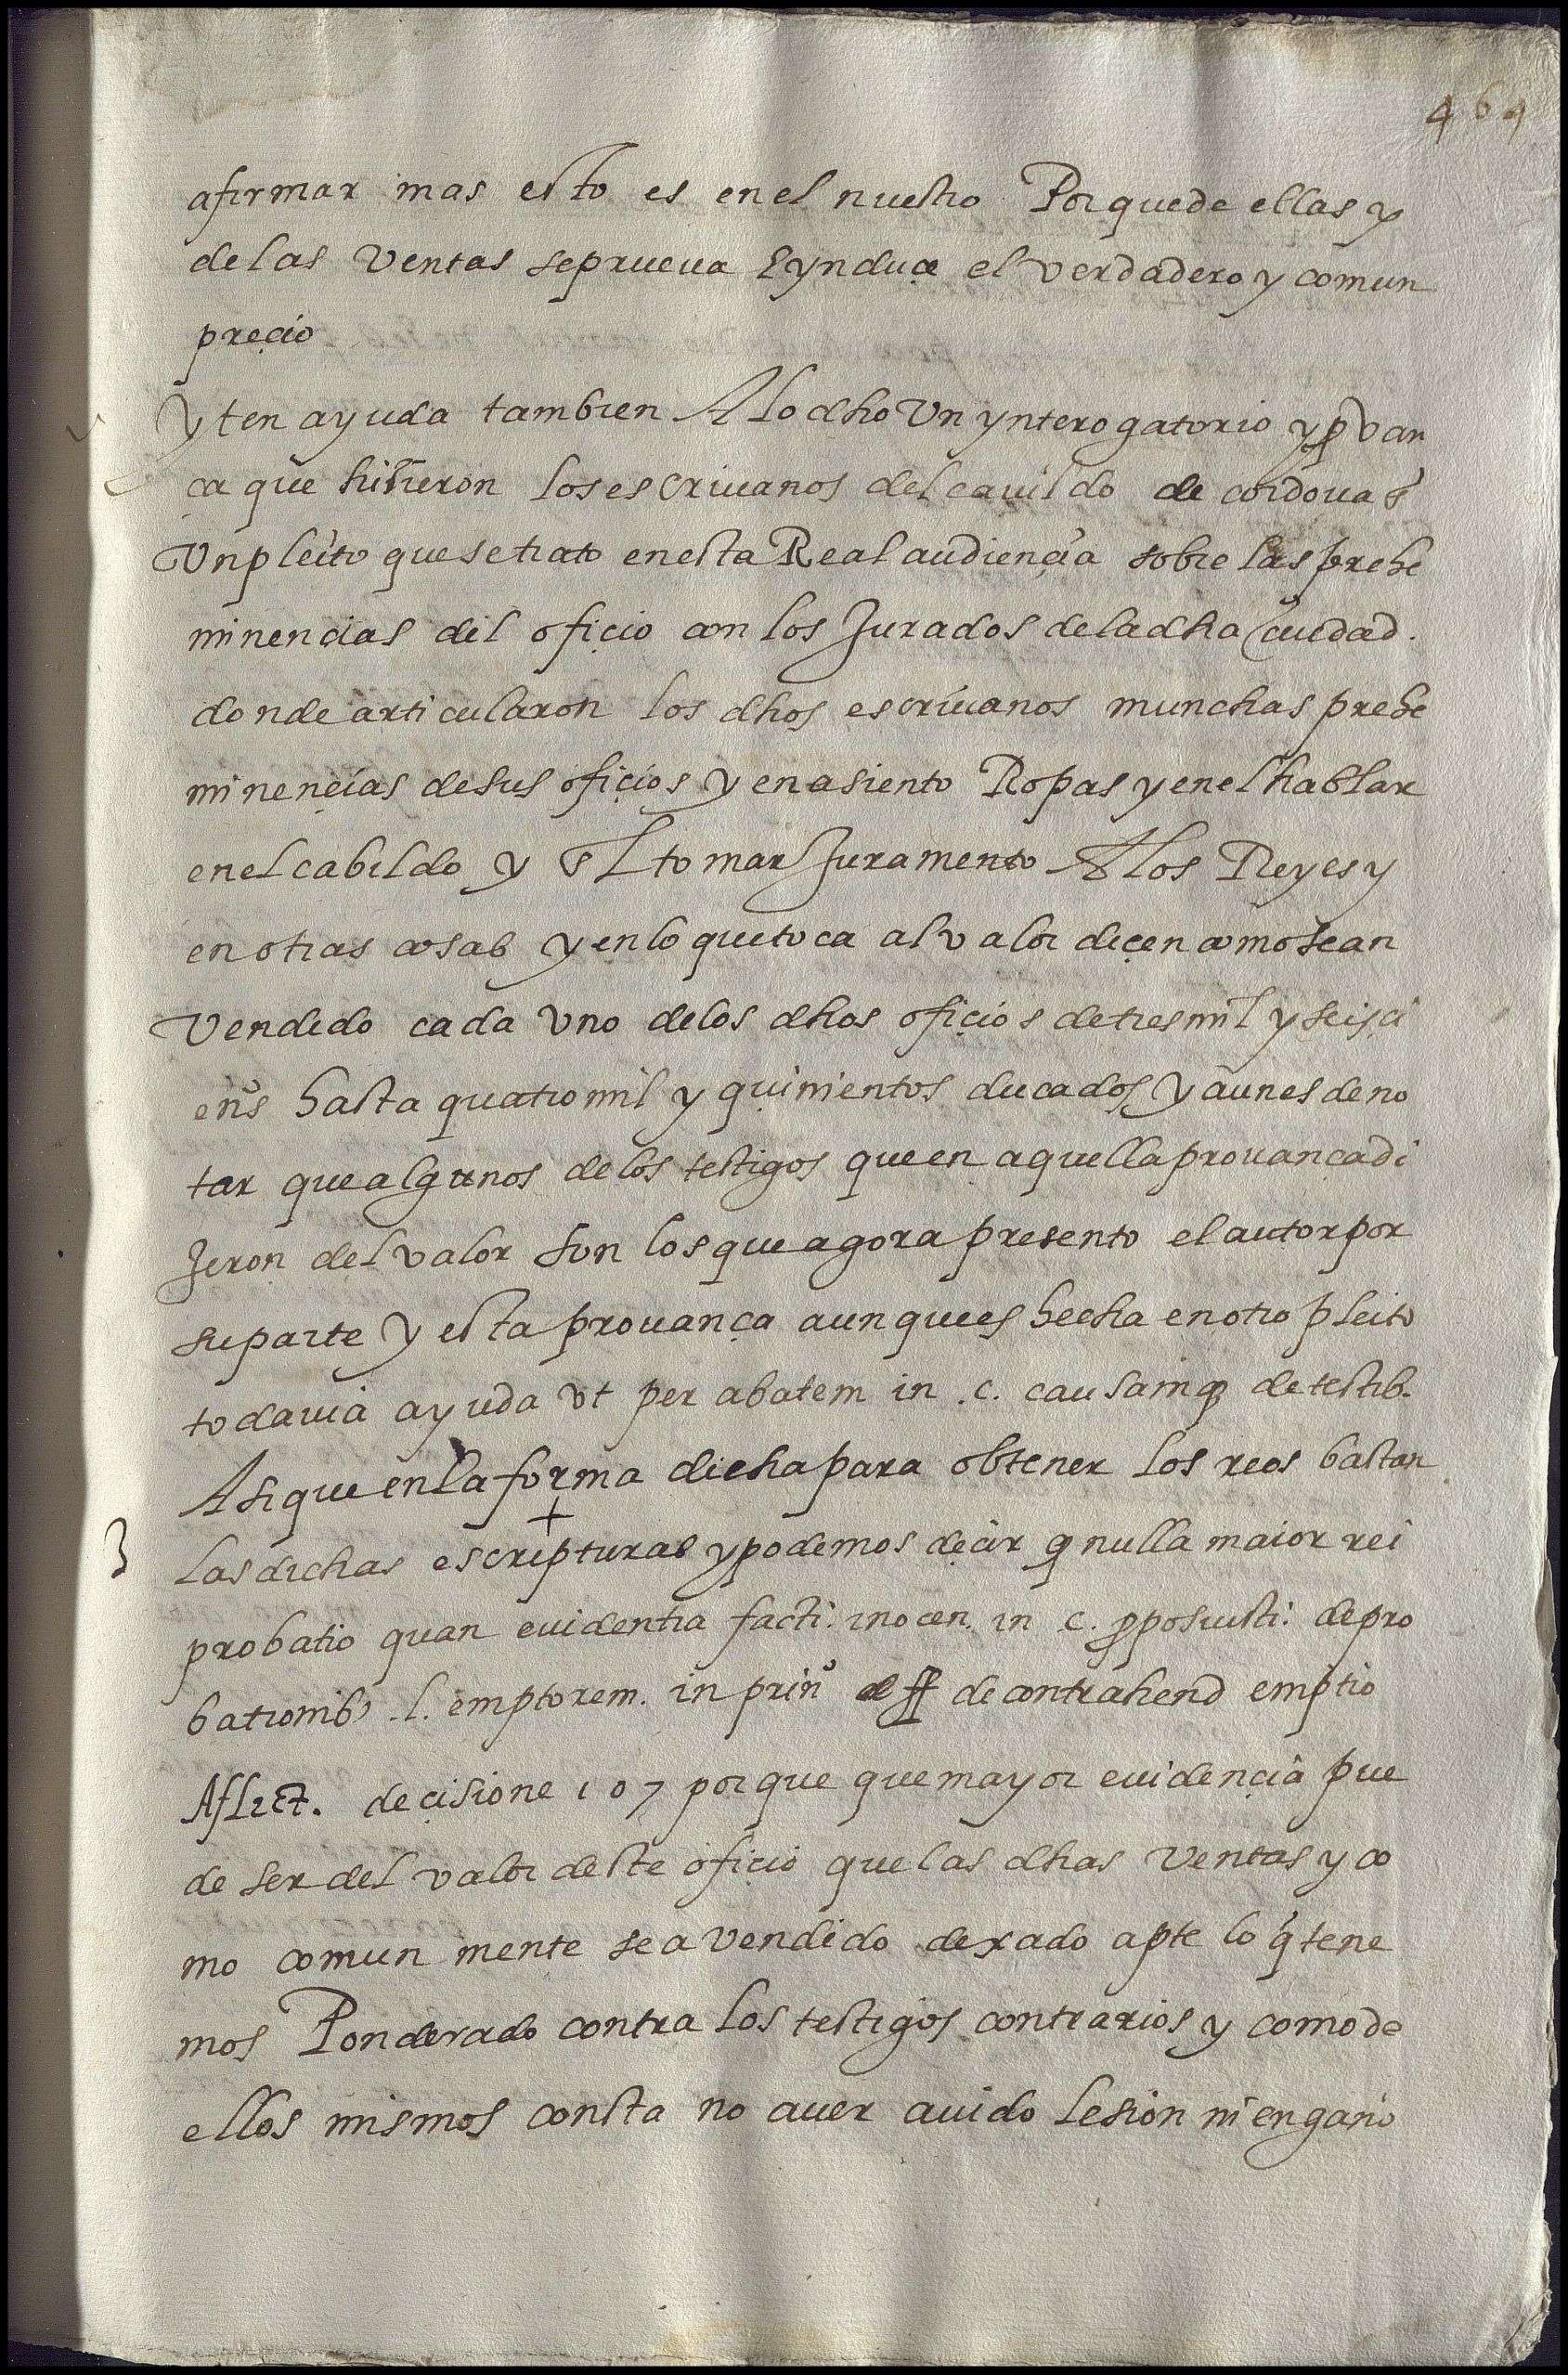 464
afirmar mas esto es en el nuestro Porque de ellas y
de las Ventas se prueua E ynduçe el verdadero y comun
preçio
Yten ayuda tambien A lo dho Vn ynterogatorio y prouan
ça que hiçieron los escriuanos del cauildo de cordoua en
Vn pleito que se trato en esta Real audiençia sobre las prehe
minencias del ofiçio con los Jurados de la dha ciudad.
donde articularon los dhos escriuanos munchas prehe
minençias de sus ofiçios y en asiento Ropas y en el hablar
en el cabildo y el tomar Juramento A los Reyes y
en otras cosas y en lo que toca al valor diçen como se an
Vendido cada vno de los dhos ofiçios de tres mil y seisçi
ens hasta quatro mil y quinientos ducados y aun es de no
tar que algunos de los testigos que en aquella prouança di
Jeron del valor son los que agora presento el autor por
su parte y esta prouança aunque es hecha en otro pleito
todauia ayuda vt per abatem in .c. causamq de testib.
Asi que en la forma dicha para obtener los reos bastan
las dichas escripturas y podemos deçir q nulla maior rei
probatio quan euidentia facti. inocen. in c. proposuisti. de pro
bationib9 .l. emptorem. in prinº ff de contrahend emptio
Aflict. deçisione 107 porque que mayor euidençia pue
de ser del valor deste ofiçio que las dhas Ventas y co
mo comun mente se a vendido dexado apte lo q tene
mos Ponderado contra los testigos contrarios y como de
ellos mismos consta no auer auido lesion ni engano